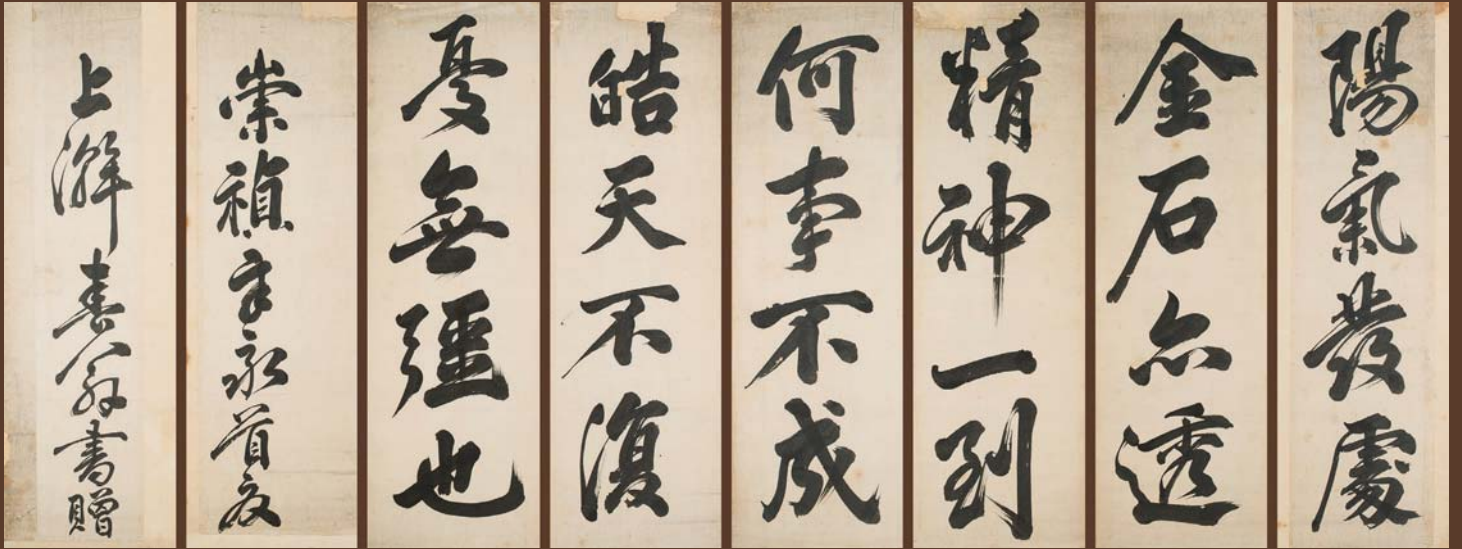 陽氣發處
金石亦透
精神一到
何事不成
皓天不復
憂無疆也
崇禎辛亥首夏
上澣春翁書贈